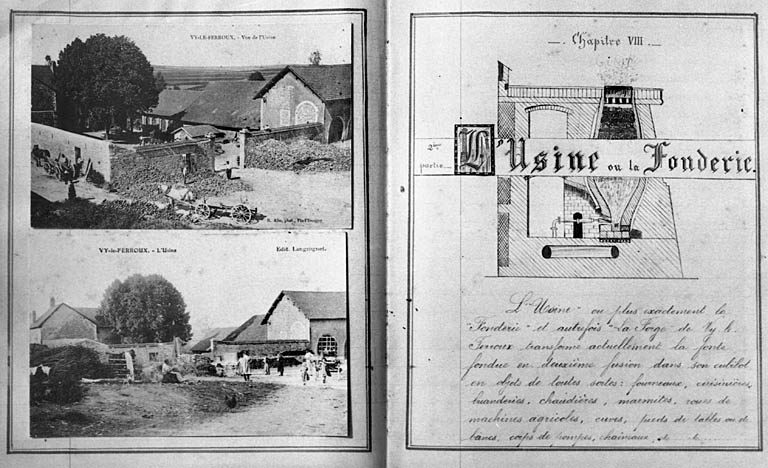 VY-LE-FERROUX. - Vue de l'Usine
VY-le-FERROUX. - L'Usine
Edit. Langrognet.
Chapitre VIII
2ème
partie
L'Usine ou la Fonderie.
L'Usine - ou plus exactement la
Fonderie - et autrefois "La Forge" de Vy-le-
Ferroux transforme actuellement la fonte
fondue en deuxième fusion dans son cubilot
en objets de toutes sortes: fourneaux, cuisinières,
buanderies, chaudières, marmites, roues de
machines agricoles, cuves, pieds de tables ou de
bancs, corps de pompes,